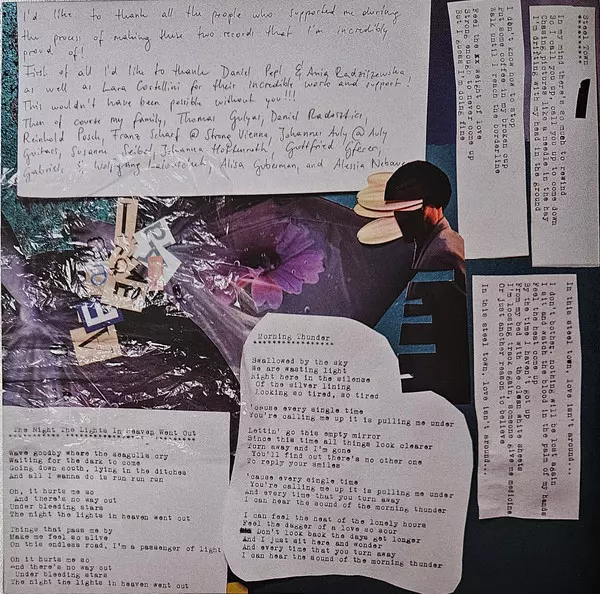 I'd like to thank all the people who supported me during
the process of making these two records that I'm incredibly
proud of!
First of all I'd like to thank Daniel Pepl & Ania Radziszewska,
as well as Lara Cortellini for their incredible work and support
This wouldn't have been possible without you!!!
Then of course my family, Thomas Gulyas, Daniel
Reinhold Posch, Franz Scharf @ Strong Vienna, Johannes Auly @ Auly
Guitars, Susanne Seibel, Johanna Gottfried
Gabriel, & Wolfgang Alisa Guberman, and Alessia
Steel Town
In my mind there's so much to rewind
So I call you up, tell you up to come down
Chasing pictures, like a needle in the hay
I'm drifting with my head in the ground
I don't know how to stop
Put some coffee in my broken cup
Talk until I reach the borderline
Feel the xx weight of love
Strong enough to never come up
But I guess I'm doing fine
In this steel town, love isn't around...
I don't bother, nothing will be lost again
I sit and watch the blood in the palm of my hands
Feel the heat come up
By the time I haven't got up
From my bed with the clean white sheets
I'm loosing track again, someone give me medicine
Or just another reason to believe
In this steel town, love isn't around...
I LOVE
Morning Thunder
Swallowed by the sky
We are wasting light
Right here in the silence
Of the silver lining
Looking so tired, so tired
'cause every single time
You're calling me up it is pulling me under
Lettin' go this empty mirror
Since this time all things look clearer
Turn away and I'm gone
You'll find out there's no other one
To reply your smiles
'cause every single time
You're calling me up it is pulling me under
And every time that you turn away
I can hear the sound of the morning thunder
I can feel the heat of the lonely hours
Feel the dagger of a love so sour
Don't look back the days get longer
And I just sit here and wonder
And every time that you turn away
I can hear the sound of the morning thunder
The Night The Lights In Heaven Went Out
Wave goodby where the seagulls cry
Waiting for the dark to come
Going down south, lying in the ditches
And all I wanna do is run run run
Oh, it hurts me so
And there's no way out
Under bleeding stars
The night the lights in heaven went out
Things that pass me by
Make me feel so alive
on this endless road, I'm a passenger of light
Oh it hurts me so
And there's no way out
Under bleeding stars
The night the lights in heaven went out